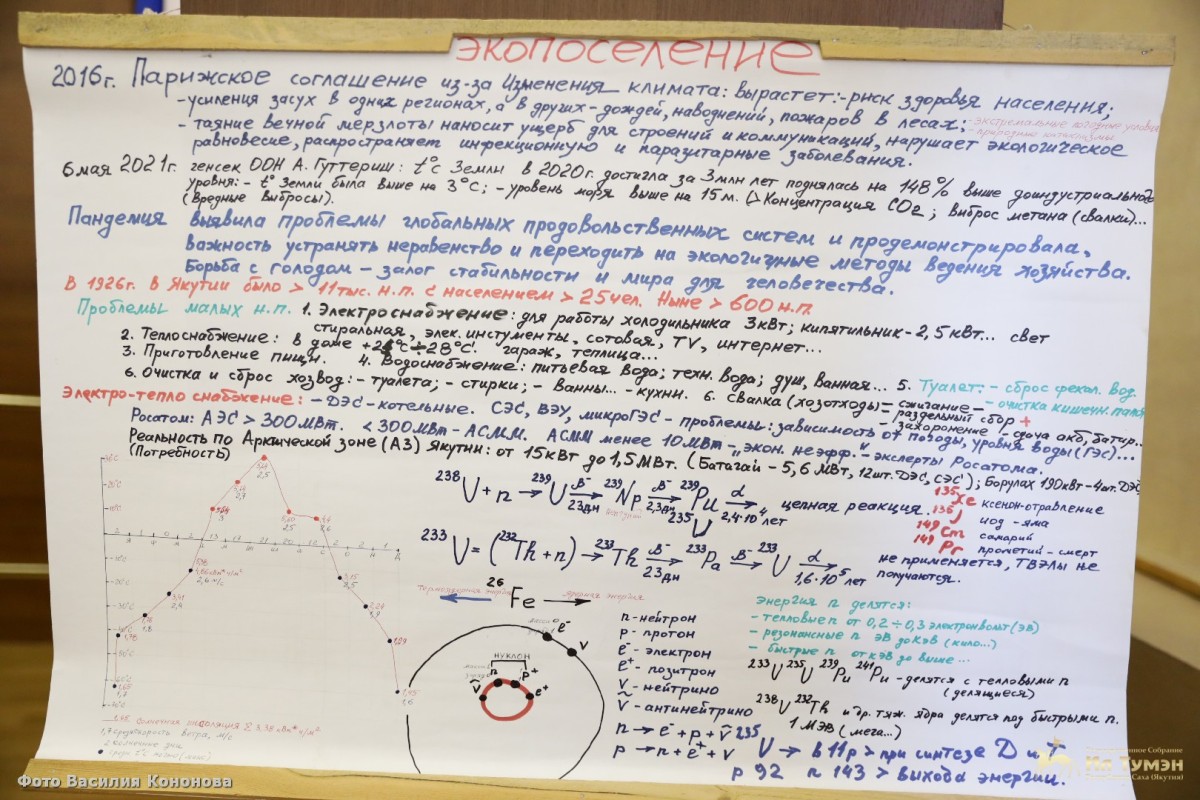 ЭКОПОСЕЛЕНИЕ
2016г. Парижское соглашение из-за Изменения климата: вырастет:-риск здоровья населения;
-усиления засух в одних регионах, а в других - дождей, наводнений, пожаров в лесах;
- таяние вечной мерзлоты наносит ущерб для строений и коммуникаций, нарушает экологическое
равновесие, распространяет инфекционную и паразитарные заболевания.
6 мая 2021г. генсек ООН А. Гуттериш: t°C Земли в 2020г. достигла за 3млн лет поднялась на 148% выше доиндустриального
уровня: - t° Земли была выше на 3°C; - уровень моря выше на 15м. Концентрация CO2; выброс метана (свалки)...
(Вредные выбросы).
Пандемия выявила проблемы глобальных продовольственных систем и продемонстрировала,
важность устранять неравенство и переходить на экологичные методы ведения хозяйства.
Борьба с голодом - залог стабильности и мира для человечества.
В 1926г. в Якутии было > 11тыс. н.п. с населением > 25чел. Ныне > 600 н.п.
Проблемы малых н.п. 1. Электроснабжение: для работы холодильника 3кВт; кипятильник - 2,5 кВт... свет
стиральная, элек. инстументы, сотовая, TV, интернет...
2. Теплоснабжение: в доме +24°C÷28°C. гараж, теплица...
3. Приготовление пищи. 4. Водоснабжение: питьевая вода; техн. вода; душ, ванная... 5. Туалет: - сброс фекал. вод.
- очистка кишечн.
6. Очистка и сброс хозвод: - туалета; - стирки; - ванны... - кухни. 6. Свалка (хозотходы) - сжигание
- раздельный сбор +
- захоронение - сдача акб, батар...
Электро-тепло снабжение: - ДЭС - котельные. СЭС, ВЭУ, микроГЭС - проблемы: зависимость от погоды, уровня воды (ГЭС)...
Росатом: АЭС > 300МВт. < 300МВт - АСММ. АСММ менее 10МВт - "экон. неэфф." - эксперты Росатома.
Реальность по Арктической зоне (АЗ) Якутии: от 15кВт до 1,5МВт. (Батагай - 5,6 МВт, 12шт. ДЭС, СЭС); Борулах 190кВт - 4шт. ДЭС
(Потребность)
238U + n → 239U β- 23дн → 239Np β- 2,3дн → 239Pu α 2,4·10⁴ лет → 235U цепная реакция.
135Xe ксенон-отравление
136J иод - яма
149Cm самарий
149Pr прометий - смерт
233U = (232Th + n) → 233Th β- 23дн → 233Pa β- → 233U α 1,6·10⁵ лет
не применяется, ТВЭЛы не
получаются.
26
Fe
ядерная энергия
e-
ν
НУКЛОН
n p+
ν̃ e+
n - нейтрон
p - протон
e- - электрон
e+ - позитрон
ν - нейтрино
ν̃ - антинейтрино
n → e- + p + ν̃
p → n + e+ + ν
Энергия n делятся:
- тепловые n от 0,2 ÷ 0,3 электронвольт (эВ)
- резонансные n эВ до КэВ (кило...)
- быстрые n от кэВ до выше...
233U 235U 239Pu 241Pu - делятся с тепловыми n
(делящиеся)
238U 232Th и др. тяж. ядра делятся под быстрыми n.
1 МЭВ (мега...)
235U → в 11р > при синтезе D и T
p 92 n 143 > выхода энергии.
1,7 среднескорость ветра, м/с
Фото Василия Кононова
Ил Тумэн
Саха (Якутия)